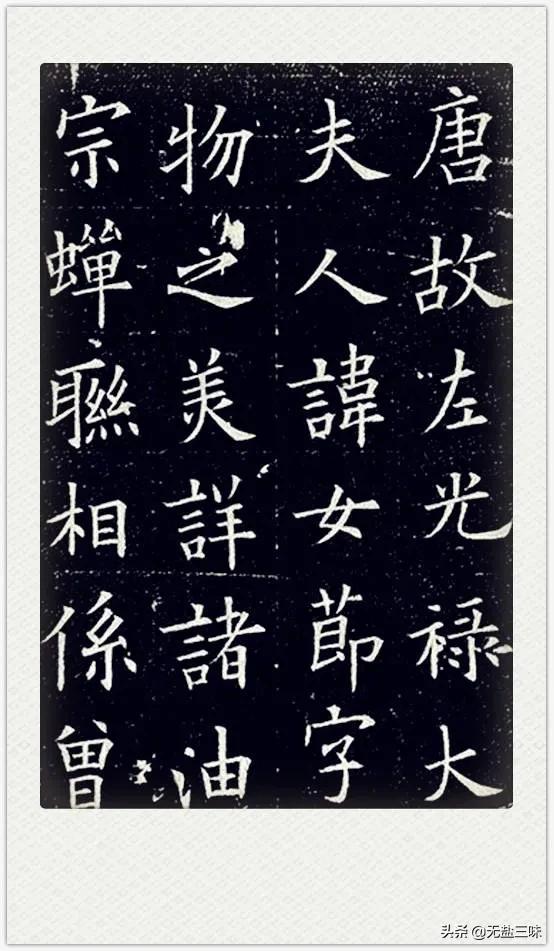 唐故左光祿大
夫人諱女節字
物之美詳諸油
宗蟬聯相係曾
头条 @无盐三味